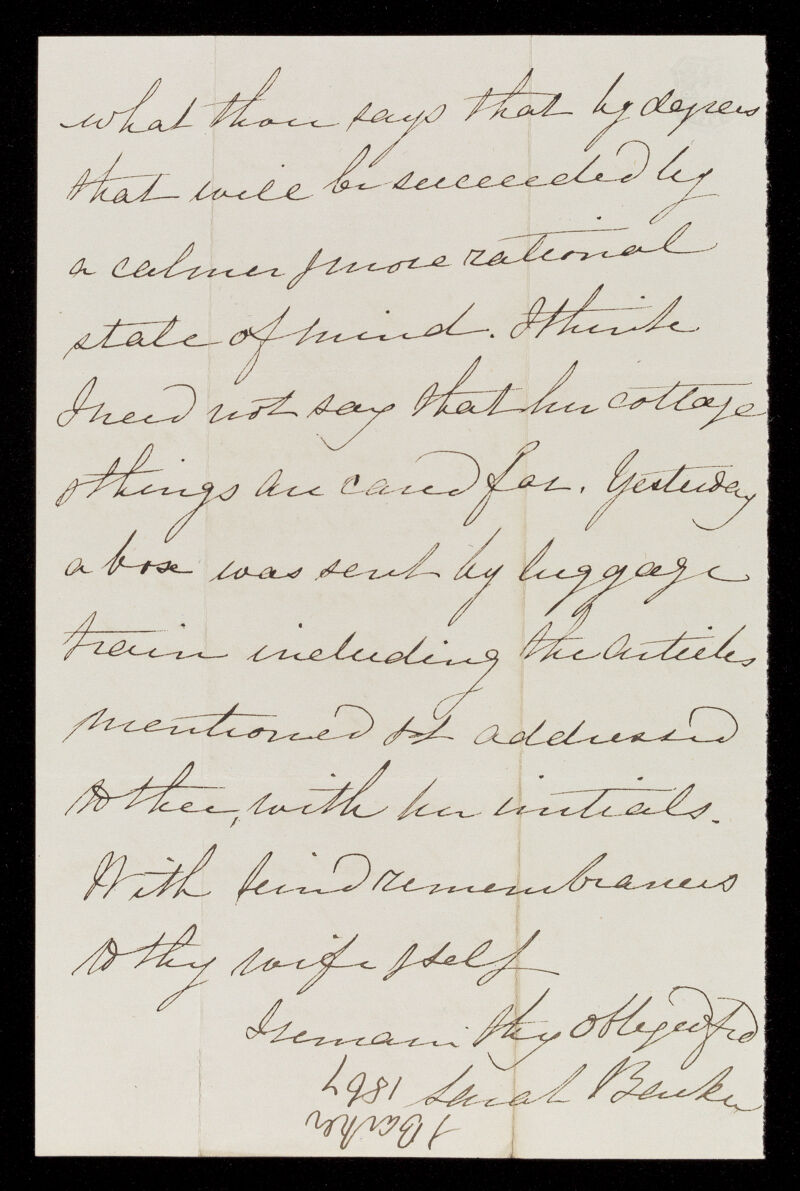 what thou says that by degrees
that will be succeeded by
a calmer & more rational
state of mind. I think
I need not say that her cottage
& things are cared for. Yesterday
a box was sent by luggage
train including the articles
mentioned & addressed
to thee, with her initials.
With kind remembrances
to thy wife & self
I remain thy obliged frd
Sarah Barker
1867
Barker